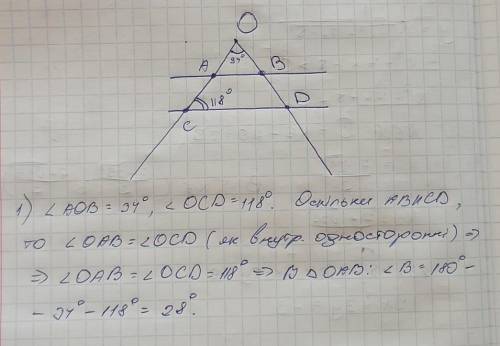 O
A 34° B
118° D
C
1) ∠AOB = 34°, ∠OCD = 118°. Оскільки AB||CD,
то ∠OAB = ∠OCD (як внутр. односторонні) ⇒
⇒ ∠OAB = ∠OCD = 118° ⇒ В △OAB: ∠B = 180° -
- 34° - 118° = 28°.